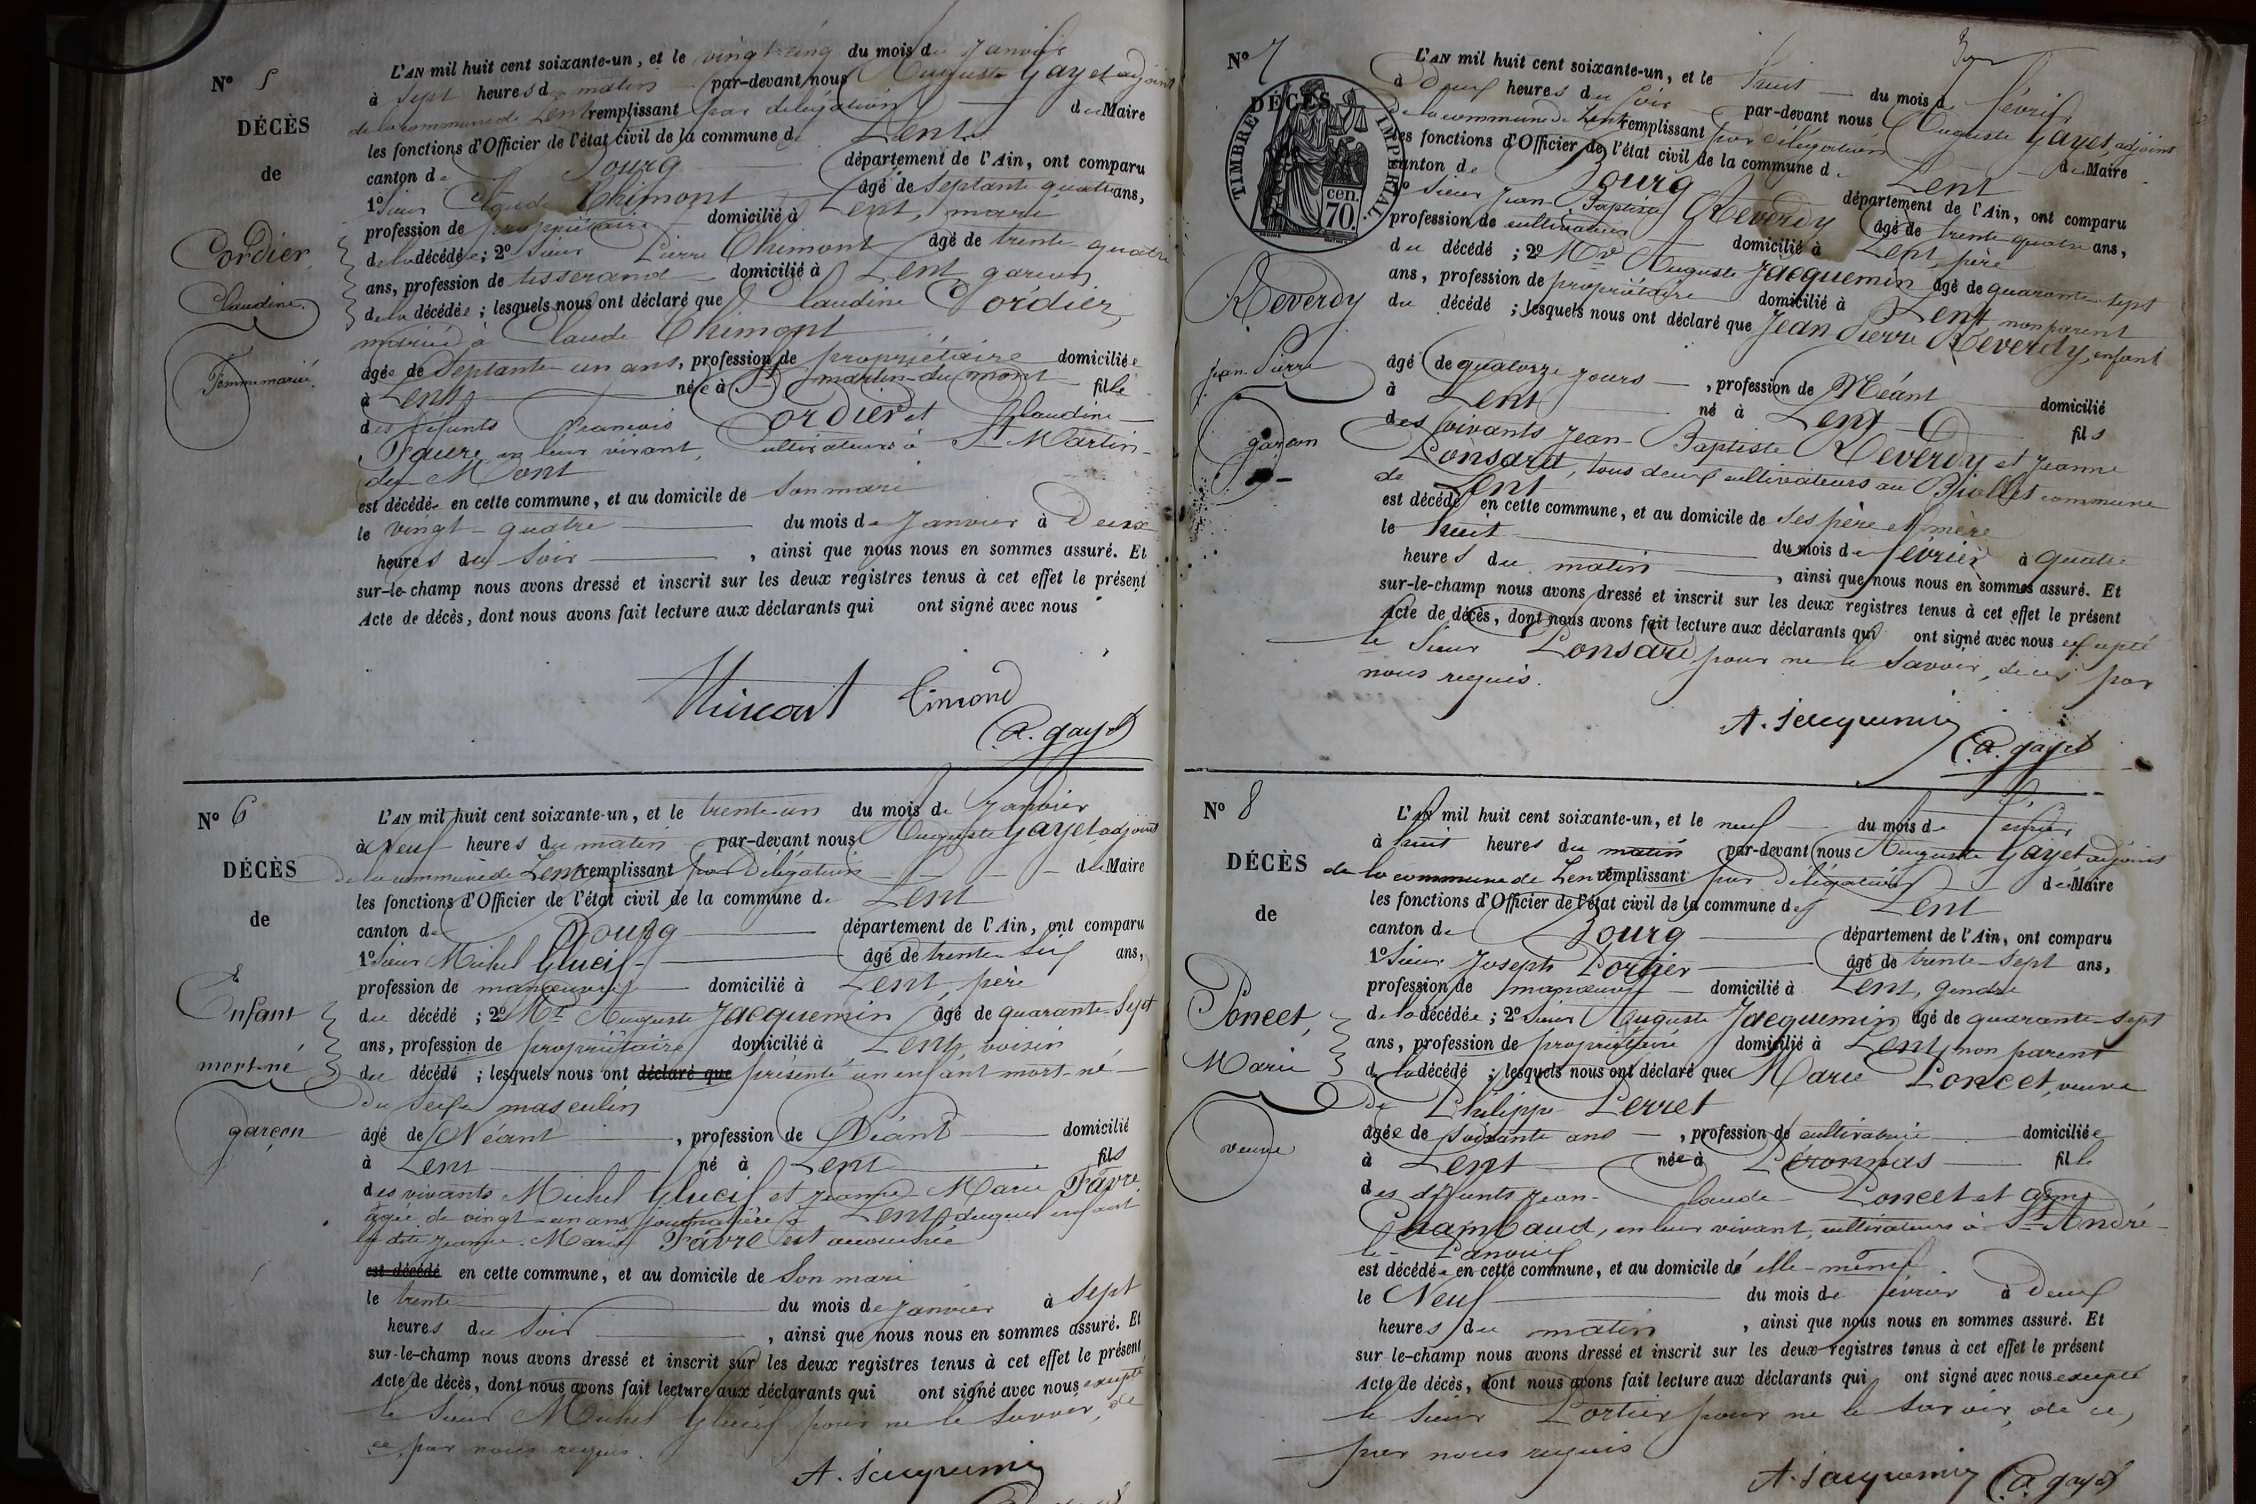 N° 5
DÉCÈS
de
Cordier
Claudine
Femme mariée.
L'AN mil huit cent soixante-un, et le vingt-cinq du mois de Janvier
à sept heures du matin par-devant nous Auguste Gayet adjoint
de la commune de Lent remplissant par délégation du Maire
les fonctions d'Officier de l'état civil de la commune de Lent
canton de Bourg département de l'Ain, ont comparu
1° Sieur Claude Chimont âgé de septante quatre ans,
profession de propriétaire domicilié à Lent, mari
de la décédée ; 2° Sieur Pierre Chimont âgé de trente quatre
ans, profession de tisserand domicilié à Lent garçon
de la décédée ; lesquels nous ont déclaré que Claudine Cordier,
mariée à Claude Chimont
âgée de Septante un ans, profession de propriétaire domiciliée
à Lent née à St martin-du mont fille
des défunts François Cordier et Claudine
Favre en leur vivant, cultivateurs à St Martin-
du Mont
est décédée en cette commune, et au domicile de Son mari
le vingt-quatre du mois de Janvier à Deux
heures du Soir , ainsi que nous nous en sommes assuré. Et
sur-le-champ nous avons dressé et inscrit sur les deux registres tenus à cet effet le présent
Acte de décès, dont nous avons fait lecture aux déclarants qui ont signé avec nous
a. gayet
N° 6
DÉCÈS
de
Enfant
mort-né
garçon
L'AN mil huit cent soixante-un, et le trente-un du mois de Janvier
à Neuf heures du matin par-devant nous Auguste Gayet, adjoint
de la commune de Lent remplissant par Délégation du Maire
les fonctions d'Officier de l'état civil de la commune de Lent
canton de Bourg département de l'Ain, ont comparu
1° Sieur Michel âgé de trente-six ans,
profession de manoeuvre domicilié à Lent, père
du décédé ; 2° Mr Auguste Jacquemin âgé de quarante-Sept
ans, profession de propriétaire domicilié à Lent, voisin
du décédé ; lesquels nous ont déclaré que présenté un enfant mort-né
du sexe masculin
âgé de Néant , profession de Néant domicilié
à Lent né à Lent fils
des vivants Michel et Jeanne-Marie Favre
âgée de vingt-un ans journalière à Lent, duquel enfant
la dite Jeanne-Marie Favre est accouchée
est décédé en cette commune, et au domicile de Son mari
le trente du mois de Janvier à Sept
heures du Soir , ainsi que nous nous en sommes assuré. Et
sur-le-champ nous avons dressé et inscrit sur les deux registres tenus à cet effet le présent
Acte de décès, dont nous avons fait lecture aux déclarants qui ont signé avec nous excepté
le Sieur Michel pour ne le Savoir, de
ce par nous requis.
A. Jacquemin
N° 7
DÉCÈS
TIMBRE IMPÉRIAL.
cen.
70.
Reverdy
Jean Pierre
garçon
L'AN mil huit cent soixante-un, et le huit du mois de février
à Deux heures du Soir par-devant nous Auguste Gayet, adjoint
de la commune de Lent remplissant par délégation du Maire
les fonctions d'Officier de l'état civil de la commune de Lent
canton de Bourg département de l'Ain, ont comparu
1° Sieur Jean-Baptiste Reverdy âgé de trente-quatre ans,
profession de cultivateur domicilié à Lent, père
du décédé ; 2° Mr Auguste Jacquemin âgé de quarante-sept
ans, profession de propriétaire domicilié à Lent non parent
du décédé ; lesquels nous ont déclaré que Jean Pierre Reverdy, enfant
âgé de quatorze jours , profession de Néant domicilié
à Lent né à Lent fils
des vivants Jean-Baptiste Reverdy et Jeanne
Ponsard, tous deux cultivateurs au Biollet commune
de Lent
est décédé en cette commune, et au domicile de ses père et mère
le huit du mois de février à quatre
heures du matin , ainsi que nous nous en sommes assuré. Et
sur-le-champ nous avons dressé et inscrit sur les deux registres tenus à cet effet le présent
Acte de décès, dont nous avons fait lecture aux déclarants qui ont signé avec nous excepté
le Sieur Ponsard pour ne le Savoir, de ce par
nous requis.
A. Jacquemin a. gayet
N° 8
DÉCÈS
de
Poncet,
Marie
veuve
L'AN mil huit cent soixante-un, et le neuf du mois de février
à huit heures du matin par-devant nous Auguste Gayet adjoint
de la commune de Lent remplissant par délégation du Maire
les fonctions d'Officier de l'état civil de la commune de Lent
canton de Bourg département de l'Ain, ont comparu
1° Sieur Joseph Portier âgé de trente-Sept ans,
profession de manoeuvre domicilié à Lent, gendre
de la décédée ; 2° Sieur Auguste Jacquemin âgé de quarante-sept
ans, profession de propriétaire domicilié à Lent, non parent
de la décédé ; lesquels nous ont déclaré que Marie Poncet, veuve
de Philippe Perret
âgée de soixante ans , profession de cultivatrice domiciliée
à Lent née à Péronnas fille
des défunts Jean-Claude Poncet et
Chambaud, en leur vivant, cultivateurs à St André-
le-Panoux
est décédée en cette commune, et au domicile d'elle-même
le Neuf du mois de février à Deux
heures du matin , ainsi que nous nous en sommes assuré. Et
sur le-champ nous avons dressé et inscrit sur les deux registres tenus à cet effet le présent
Acte de décès, dont nous avons fait lecture aux déclarants qui ont signé avec nous excepté
le Sieur Portier pour ne le Savoir, de ce,
par nous requis
A. Jacquemin a. gayet